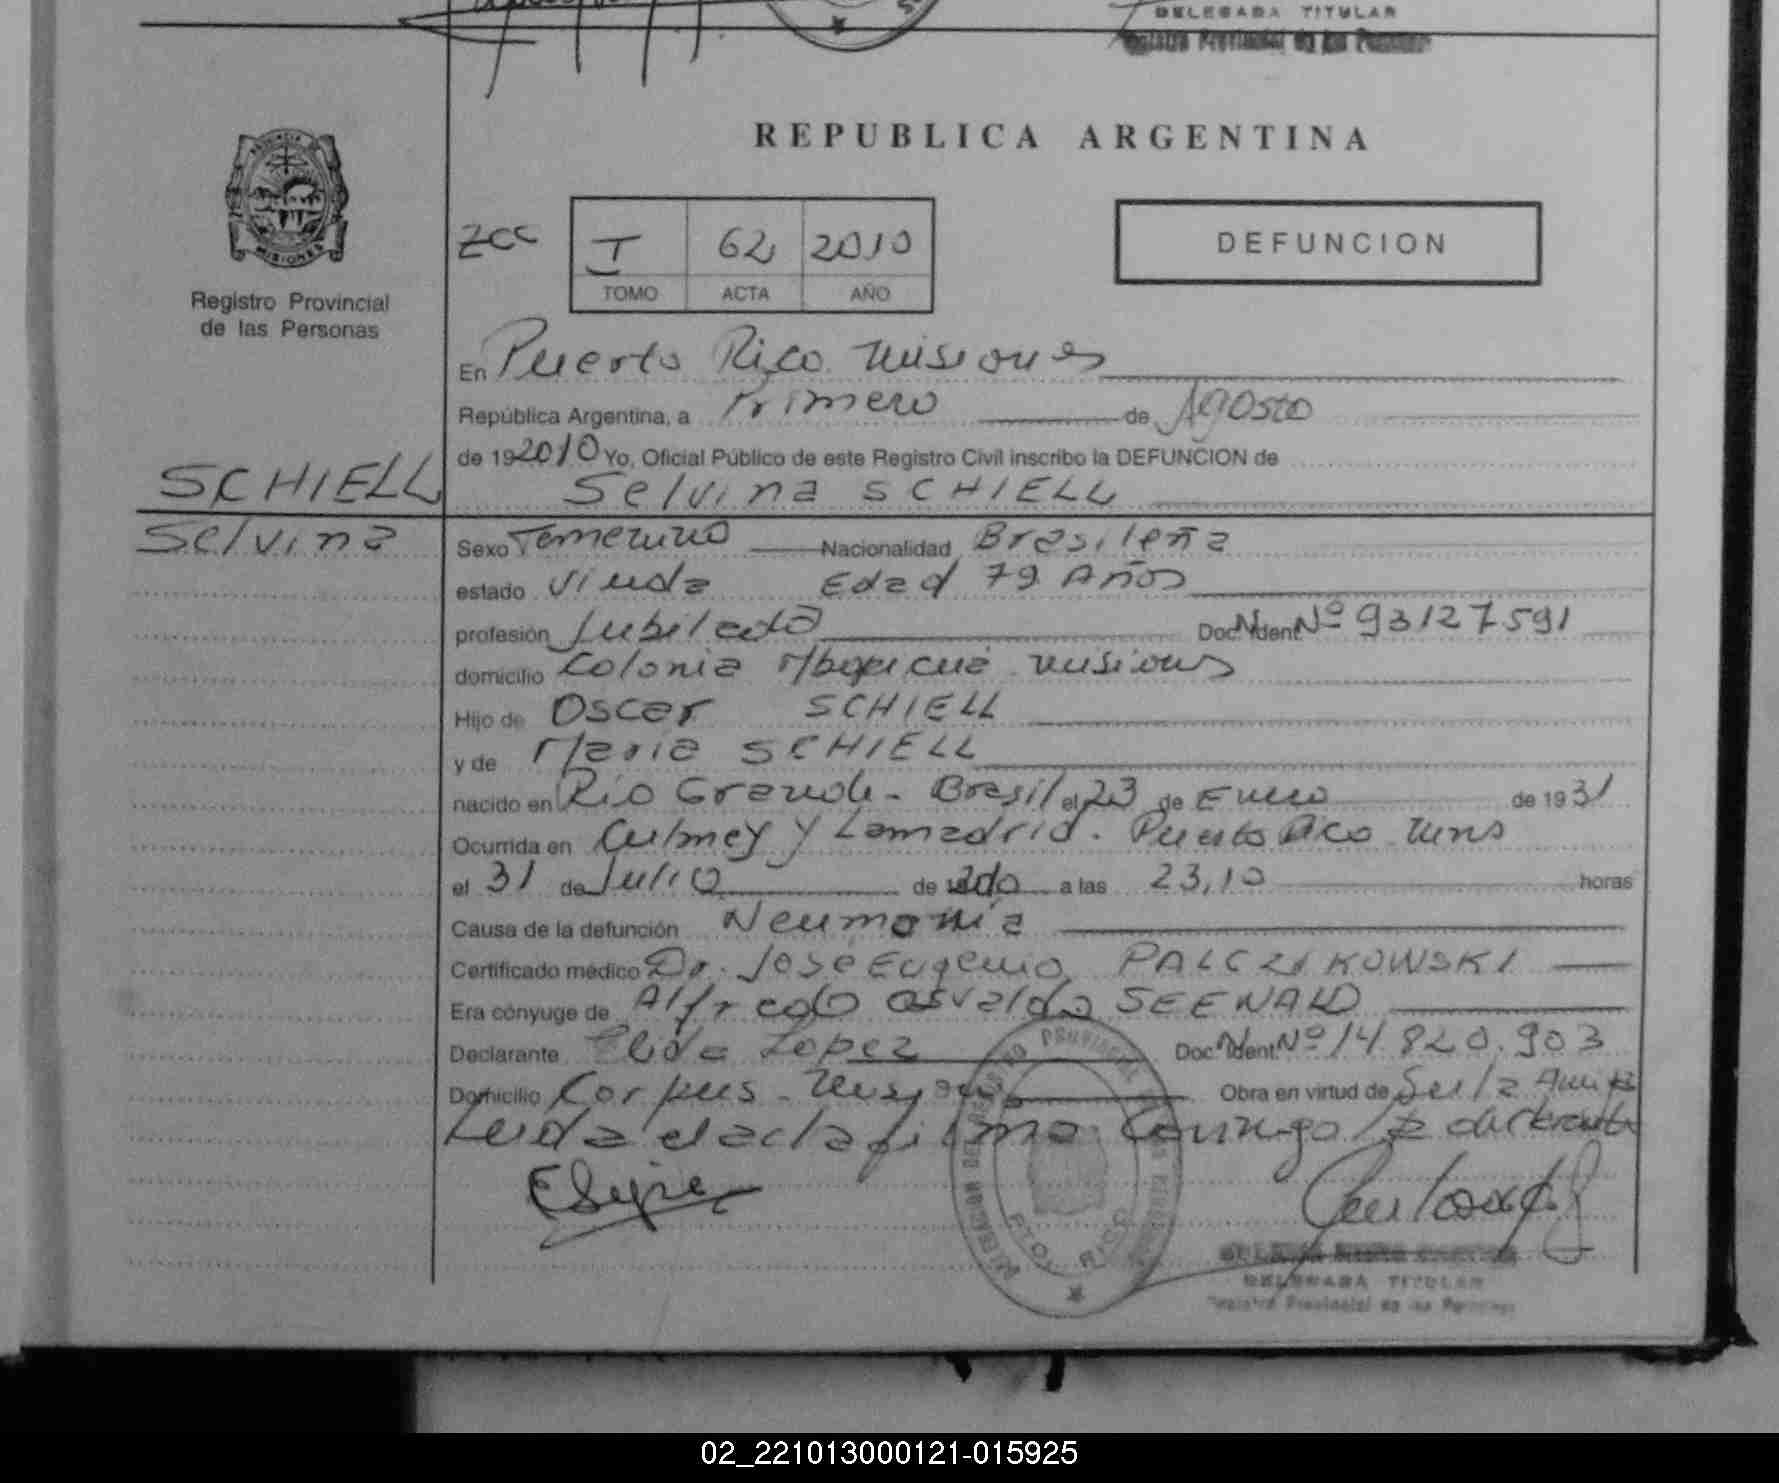 DELEGADA TITULAR
Registro Provincial de las Personas
REPUBLICA ARGENTINA
PROVINCIA DE
MISIONES
Registro Provincial
de las Personas
ZCC
I 62 2010
TOMO ACTA AÑO
DEFUNCION
En Puerto Rico Misiones
República Argentina, a Primero de Agosto
de 192010 Yo, Oficial Público de este Registro Civil inscribo la DEFUNCION de
SCHIELL
Selvina SCHIELL
Selvina
Sexo Femenino Nacionalidad Brasileña
estado Viuda Edad 79 Años
profesión Jubilada Doc. Ident. Nº 93127591
domicilio Colonia Mbopicuá Misiones
Hijo de Oscar SCHIELL
y de Maria SCHIELL
nacido en Rio Grande - Brasil el 23 de Enero de 1931
Ocurrida en Culmey y Lamadrid. Puerto Rico Mns
el 31 de Julio de 2010 a las 23,10 horas
Causa de la defunción Neumonia
Certificado médico Dr. José Eugenio PALCZIKOWSKI
Era cónyuge de Alfredo Osvaldo SEEWALD
Declarante Elida Lopez Doc. Ident. Nº 14.820.903
Domicilio Corpus - Misiones Obra en virtud de Ser la
Leida el acta firma conmigo la declarante
PTO. RICO
DELEGADA TITULAR
Registro Provincial de las Personas
02_221013000121-015925